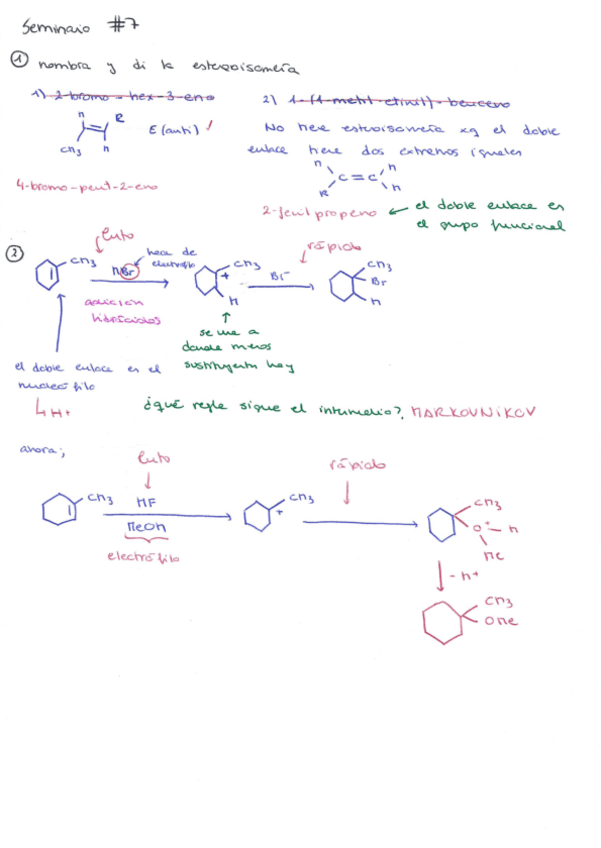 Seminario #7
① nombra y di la estereoisomería
1) 2-bromo-hex-3-eno
2) 1-(1-metil-etinil)-benceno
H R
CH3 H
E (anti)
No tiene estereoisomería xq el doble
enlace tiene dos extremos iguales
H H
C=C
R H
4-bromo-pent-2-eno
2-fenilpropeno ← el doble enlace es
el grupo funcional
②
lento
CH3
HBr
hace de
electrófilo
adición
hidrácidos
CH3
+
H
rápido
Br⁻
CH3
Br
H
se une a
donde menos
sustituyentes hay
el doble enlace es el
nucleófilo
↳ H+
¿qué regla sigue el intermedio?, MARKOVNIKOV
ahora;
lento
rápido
CH3
HF
MeOH
electrófilo
CH3
+
CH3
O⁺-H
Me
-H+
CH3
OMe